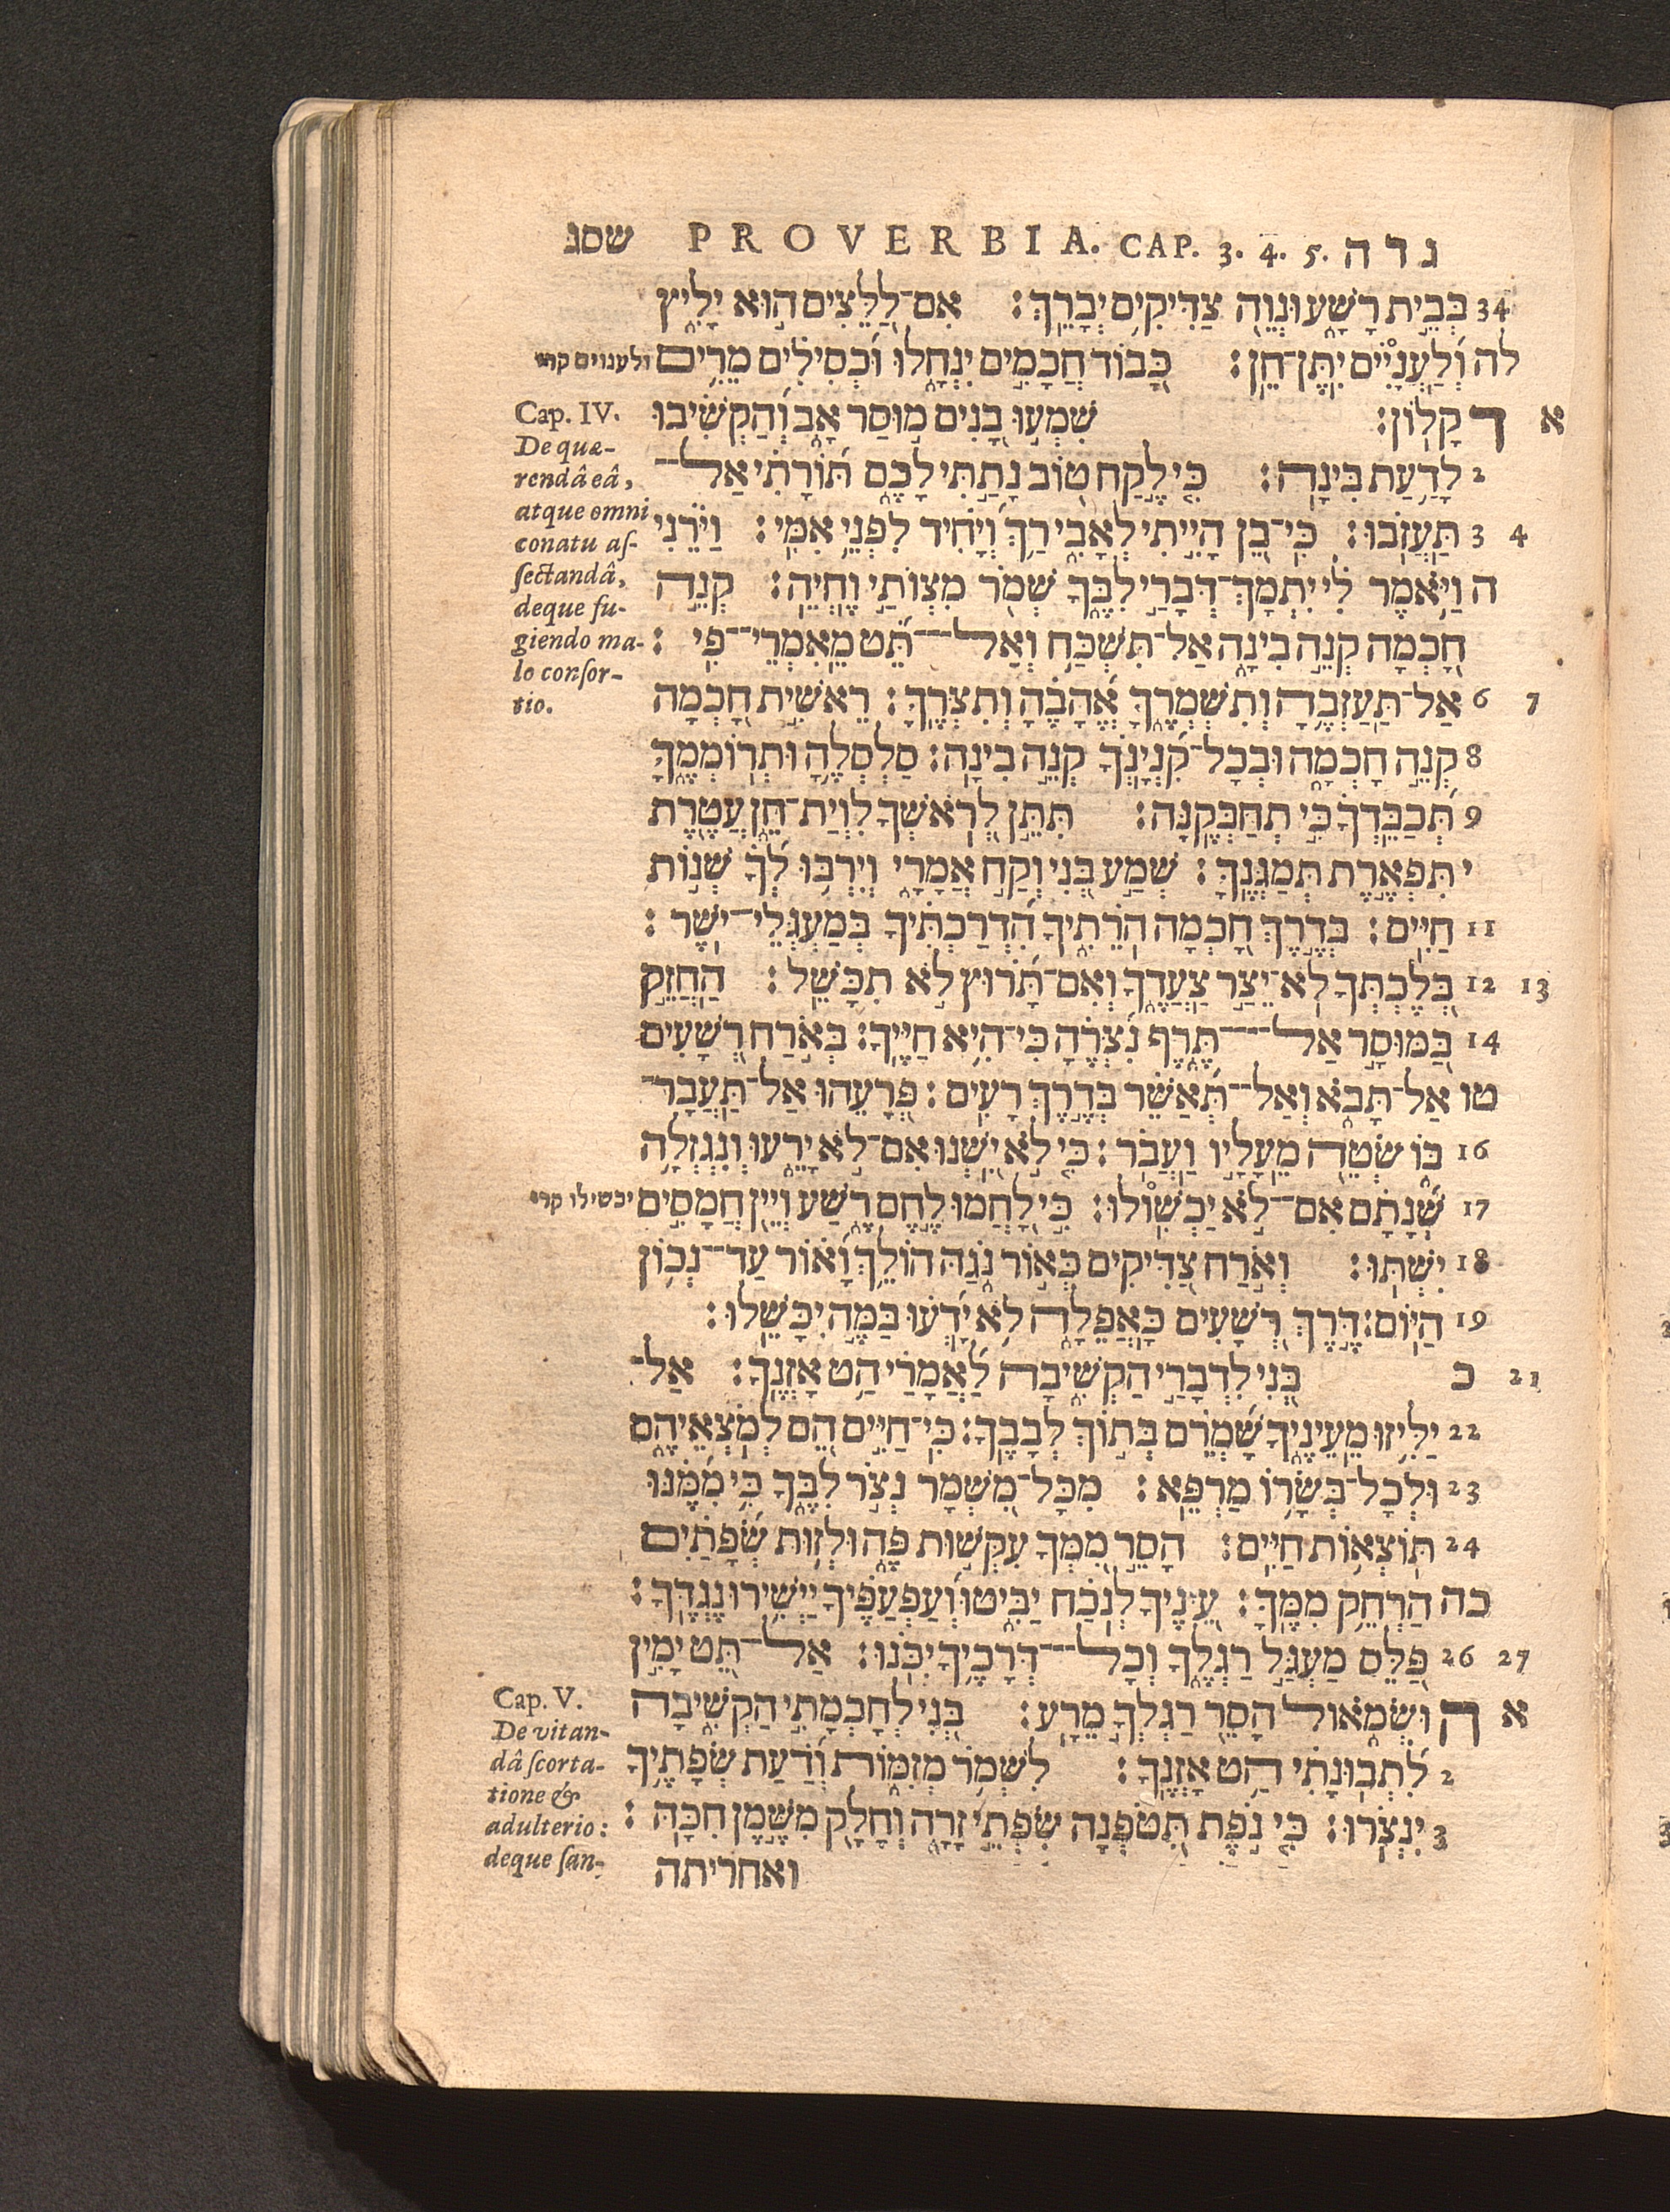 שסג PROVERBIA. CAP. 3. 4. 5. ג ד ה
34 בְּבֵית רָשָׁע וּנְוֵה צַדִּיקִים יְבָרֵךְ: אִם־לַלֵּצִים הוּא יָלִיץ
לה וְלַעֲנָיִים יִתֶּן־חֵן: כָּבוֹד חֲכָמִים יִנְחָלוּ וּכְסִילִים מֵרִים
ולענוים קרי
א ד קָלוֹן: שִׁמְעוּ בָנִים מוּסַר אָב וְהַקְשִׁיבוּ
2 לָדַעַת בִּינָה: כִּי לֶקַח טוֹב נָתַתִּי לָכֶם תּוֹרָתִי אַל־
3 4 תַּעֲזֹבוּ: כִּי־בֵן הָיִיתִי לְאָבִי רַךְ וְיָחִיד לִפְנֵי אִמִּי: וַיֹּרֵנִי
ה וַיֹּאמֶר לִי יִתְמָךְ־דְּבָרַי לִבֶּךָ שְׁמֹר מִצְוֹתַי וֶחְיֵה: קְנֵה
חָכְמָה קְנֵה בִינָה אַל־תִּשְׁכַּח וְאַל־תֵּט מֵאִמְרֵי־פִי:
6 7 אַל־תַּעַזְבֶהָ וְתִשְׁמְרֶךָּ אֱהָבֶהָ וְתִצְּרֶךָּ: רֵאשִׁית חָכְמָה
8 קְנֵה חָכְמָה וּבְכָל־קִנְיָנְךָ קְנֵה בִינָה: סַלְסְלֶהָ וּתְרוֹמְמֶךָּ
9 תְּכַבֵּדְךָ כִּי תְחַבְּקֶנָּה: תִּתֵּן לְרֹאשְׁךָ לִוְיַת־חֵן עֲטֶרֶת
י תִּפְאֶרֶת תְּמַגְּנֶךָּ: שְׁמַע בְּנִי וְקַח אֲמָרָי וְיִרְבּוּ לְךָ שְׁנוֹת
11 חַיִּים: בְּדֶרֶךְ חָכְמָה הֹרֵתִיךָ הִדְרַכְתִּיךָ בְּמַעְגְּלֵי־יֹשֶׁר:
12 13 בְּלֶכְתְּךָ לֹא־יֵצַר צַעֲדֶךָ וְאִם־תָּרוּץ לֹא תִכָּשֵׁל: הַחֲזֵק
14 בַּמּוּסָר אַל־תֶּרֶף נִצְּרֶהָ כִּי־הִיא חַיֶּיךָ: בְּאֹרַח רְשָׁעִים
טו אַל־תָּבֹא וְאַל־תְּאַשֵּׁר בְּדֶרֶךְ רָעִים: פְּרָעֵהוּ אַל־תַּעֲבָר־
16 בּוֹ שְׂטֵה מֵעָלָיו וַעֲבֹר: כִּי לֹא יִשְׁנוּ אִם־לֹא יָרֵעוּ וְנִגְזְלָה
17 שְׁנָתָם אִם־לֹא יַכְשׁוֹלוּ: כִּי לָחֲמוּ לֶחֶם רֶשַׁע וְיֵין חֲמָסִים
יכשילו קרי
18 יִשְׁתּוּ: וְאֹרַח צַדִּיקִים כְּאוֹר נֹגַהּ הוֹלֵךְ וָאוֹר עַד־נְכוֹן
19 הַיּוֹם: דֶּרֶךְ רְשָׁעִים כָּאֲפֵלָה לֹא יָדְעוּ בַּמֶּה יִכָּשֵׁלוּ:
כ 21 בְּנִי לִדְבָרַי הַקְשִׁיבָה לַאֲמָרַי הַט אָזְנֶךָ: אַל־
22 יַלִּיזוּ מֵעֵינֶיךָ שָׁמְרֵם בְּתוֹךְ לְבָבֶךָ: כִּי־חַיִּים הֵם לְמֹצְאֵיהֶם
23 וּלְכָל־בְּשָׂרוֹ מַרְפֵּא: מִכָּל־מִשְׁמָר נְצֹר לִבֶּךָ כִּי מִמֶּנּוּ
24 תּוֹצְאוֹת חַיִּים: הָסֵר מִמְּךָ עִקְּשׁוּת פֶּה וּלְזוּת שְׂפָתַיִם
כה הַרְחֵק מִמֶּךָּ: עֵינֶיךָ לְנֹכַח יַבִּיטוּ וְעַפְעַפֶּיךָ יַיְשִׁירוּ נֶגְדֶּךָ:
26 27 פַּלֵּס מַעְגַּל רַגְלֶךָ וְכָל־דְּרָכֶיךָ יִכֹּנוּ: אַל־תֵּט יָמִין
א ה וּשְׂמֹאול הָסֵר רַגְלְךָ מֵרָע: בְּנִי לְחָכְמָתִי הַקְשִׁיבָה
2 לִתְבוּנָתִי הַט אָזְנֶךָ: לִשְׁמֹר מְזִמּוֹת וְדַעַת שְׂפָתֶיךָ
3 יִנְצֹרוּ: כִּי נֹפֶת תִּטֹּפְנָה שִׂפְתֵי זָרָה וְחָלָק מִשֶּׁמֶן חִכָּהּ:
ואחריתה
Cap. IV.
De quæ-
rendâ eâ,
atque omni
conatu as-
ſectandâ,
deque fu-
giendo ma-
lo conſor-
tio.
Cap. V.
De vitan-
dâ ſcorta-
tione &
adulterio:
deque ſan-